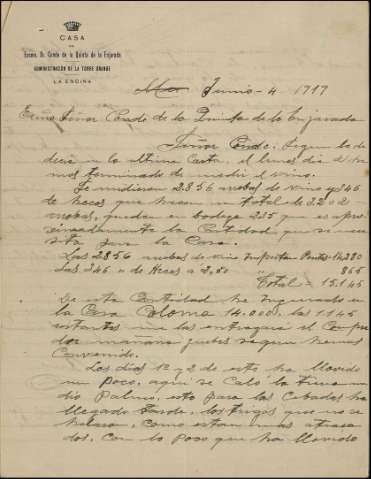 CASA
DEL
Excmo. Sr. Conde de la Quinta de la Enjarada
ADMINISTRACIÓN DE LA TORRE GRANDE
LA ENCINA
Junio - 4 1917
Excmo Señor Conde de la Quinta de la Enjarada
Señor Conde. Segun le
decia en la ultima Carta, el lunes dia
terminado de medir el vino.
Se midieron 2856 arrobas de vino y 346
de hecas que hacen un total de 3202
arrobas, quedan en bodega 235 que es apro-
ximadamente la Cantidad que se nece-
sita para la Casa.
Las 2856 arrobas de vino importan Pesetas 14,280
Las 346 " de Hecas a 2,50 " 865
Total = 15.145
De esta Cantidad he ingresado en
la Casa Coloma 14.000, las 1.145
restantes me las entregará el Compra-
dor mañana jueves segun hemos
Convenido.
Los dias 1 y 2 de este ha llovido
un poco, aqui se Caló la tierra un
dio Palmo, esto para las Cebadas ha
llegado tarde, los trigos que no se
helaron, como estan mas atrasa-
dos, con lo poco que ha llovido